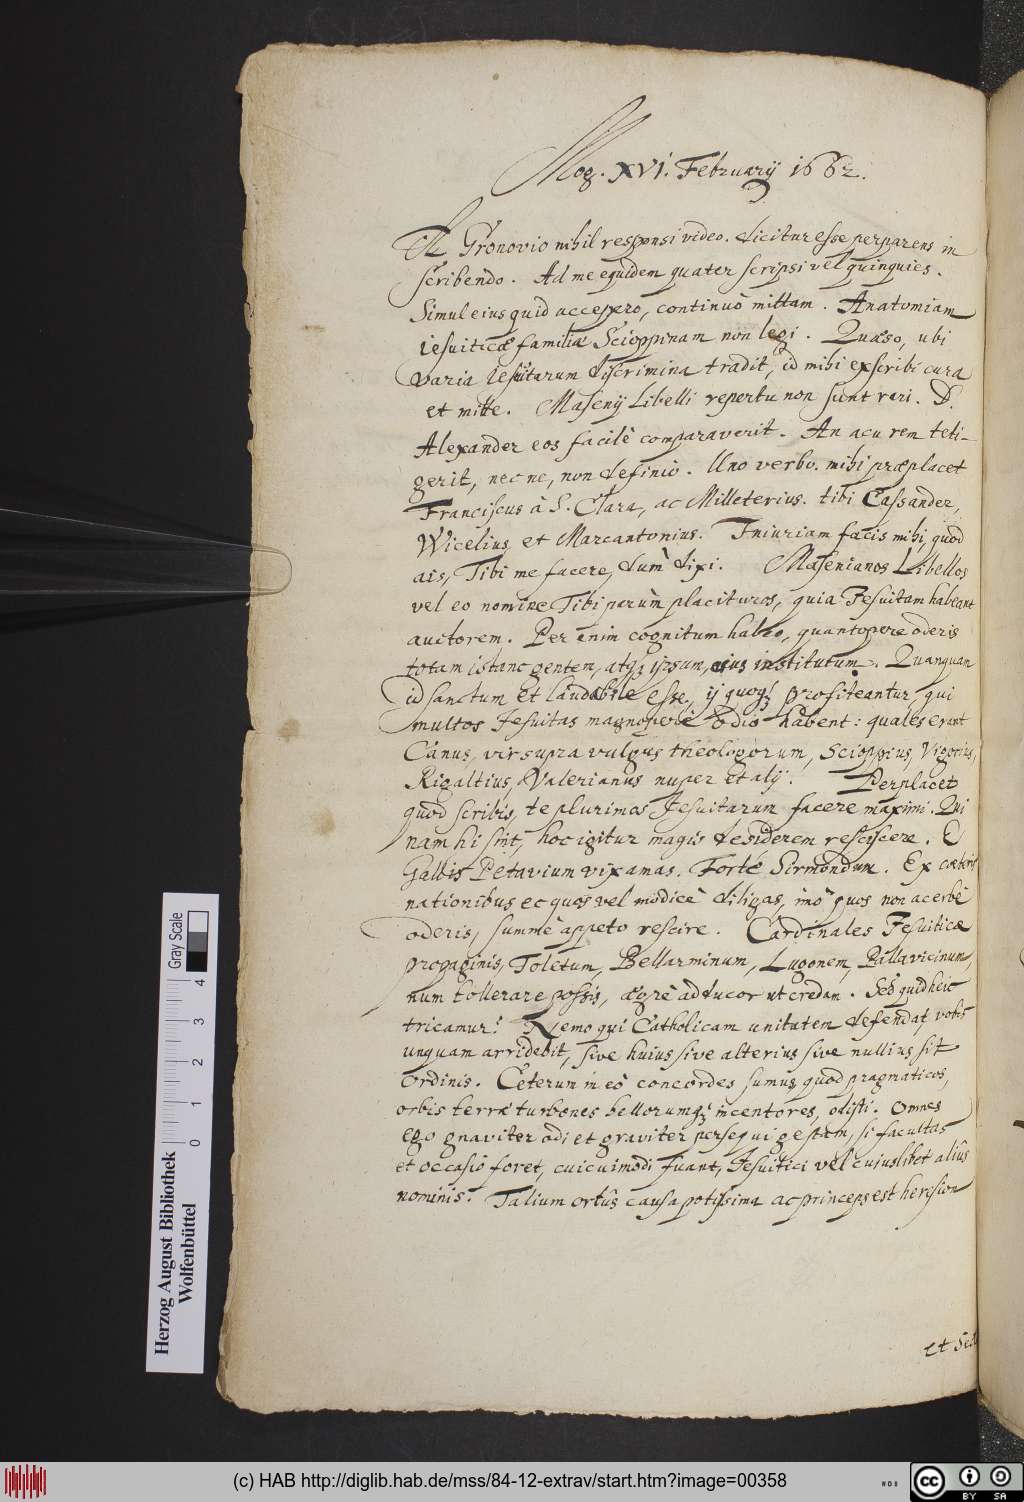 Mog. XVI. February 1662.
A Gronovio nihil responsi video. dicitur esse perparens in
scribendo. Ad me equidem quater scripsi vel quinquies.
Simul eius quid accepero, continuò mittam. Anatomiam
iesuiticæ familiæ Scioppinam non legi. Quæso, ubi
varia Iesuitarum discrimina tradit, id mihi exscribi cura
et mitte. Masenij Libelli repertu non sunt rari. D.
Alexander eos facilè comparaverit. An acu rem teti-
gerit, nec ne, non definio. Uno verbo. mihi præplacet
Franciscus à S. Clara, ac Milleterius. tibi Cassander,
Wicelius et Marcantonius. Iniuriam facis mihi, quod
ais, Tibi me facere, dum dixi. Masenianos Libellos
vel eo nomine Tibi parùm placituros, quia Jesuitam habeant
auctorem. Per enim cognitum habeo, quantopere oderis
totam istanc gentem, atq; ipsum, eius institutum. Quanquam
id sanctum et laudabile esse, ij quoq; profiteantur, qui
multos Jesuitas magnoperè odio habent: quales erant
Canus, vir supra vulgus theologorum, Scioppius, Vigorius,
Rigaltius, Valerianus nuper et alij. Perplacet
quod scribis, te plurimos Jesuitarum facere maximi. Qui
nam hi sint, hoc igitur magis desiderem resciscere. E
Gallis Petavium vix amas. Fortè Sirmondum. Ex cæteris
nationibus ecquos vel modicè diligas, imò quos non acerbè
oderis, summè appeto rescire. Cardinales Jesuiticæ
propaginis, Toletum, Bellarminum, Lugonem, Pallavicinum,
num tollerare possis, ægrè adducor ut credam. Sed quid heic
tricamur? Nemo qui Catholicam unitatem defendat, vobis
unquam arridebit, sive huius sive alterius sive nullius sit
ordinis. Ceterum in eo concordes sumus, quod pragmaticos,
orbis terræ turbones bellorumq; incentores, odisti. Omnes
ego gnaviter odi et graviter persequi gestiam, si facultas
et occasio foret, cuicuimodi fuant, Jesuitici vel cuiuslibet aliûs
nominis. Talium ortûs causa potissima ac princeps est hæresium
et sed
Herzog August Bibliothek
Wolfenbüttel
Gray Scale
0 1 2 3 4
(c) HAB http://diglib.hab.de/mss/84-12-extrav/start.htm?image=00358
cc BY SA